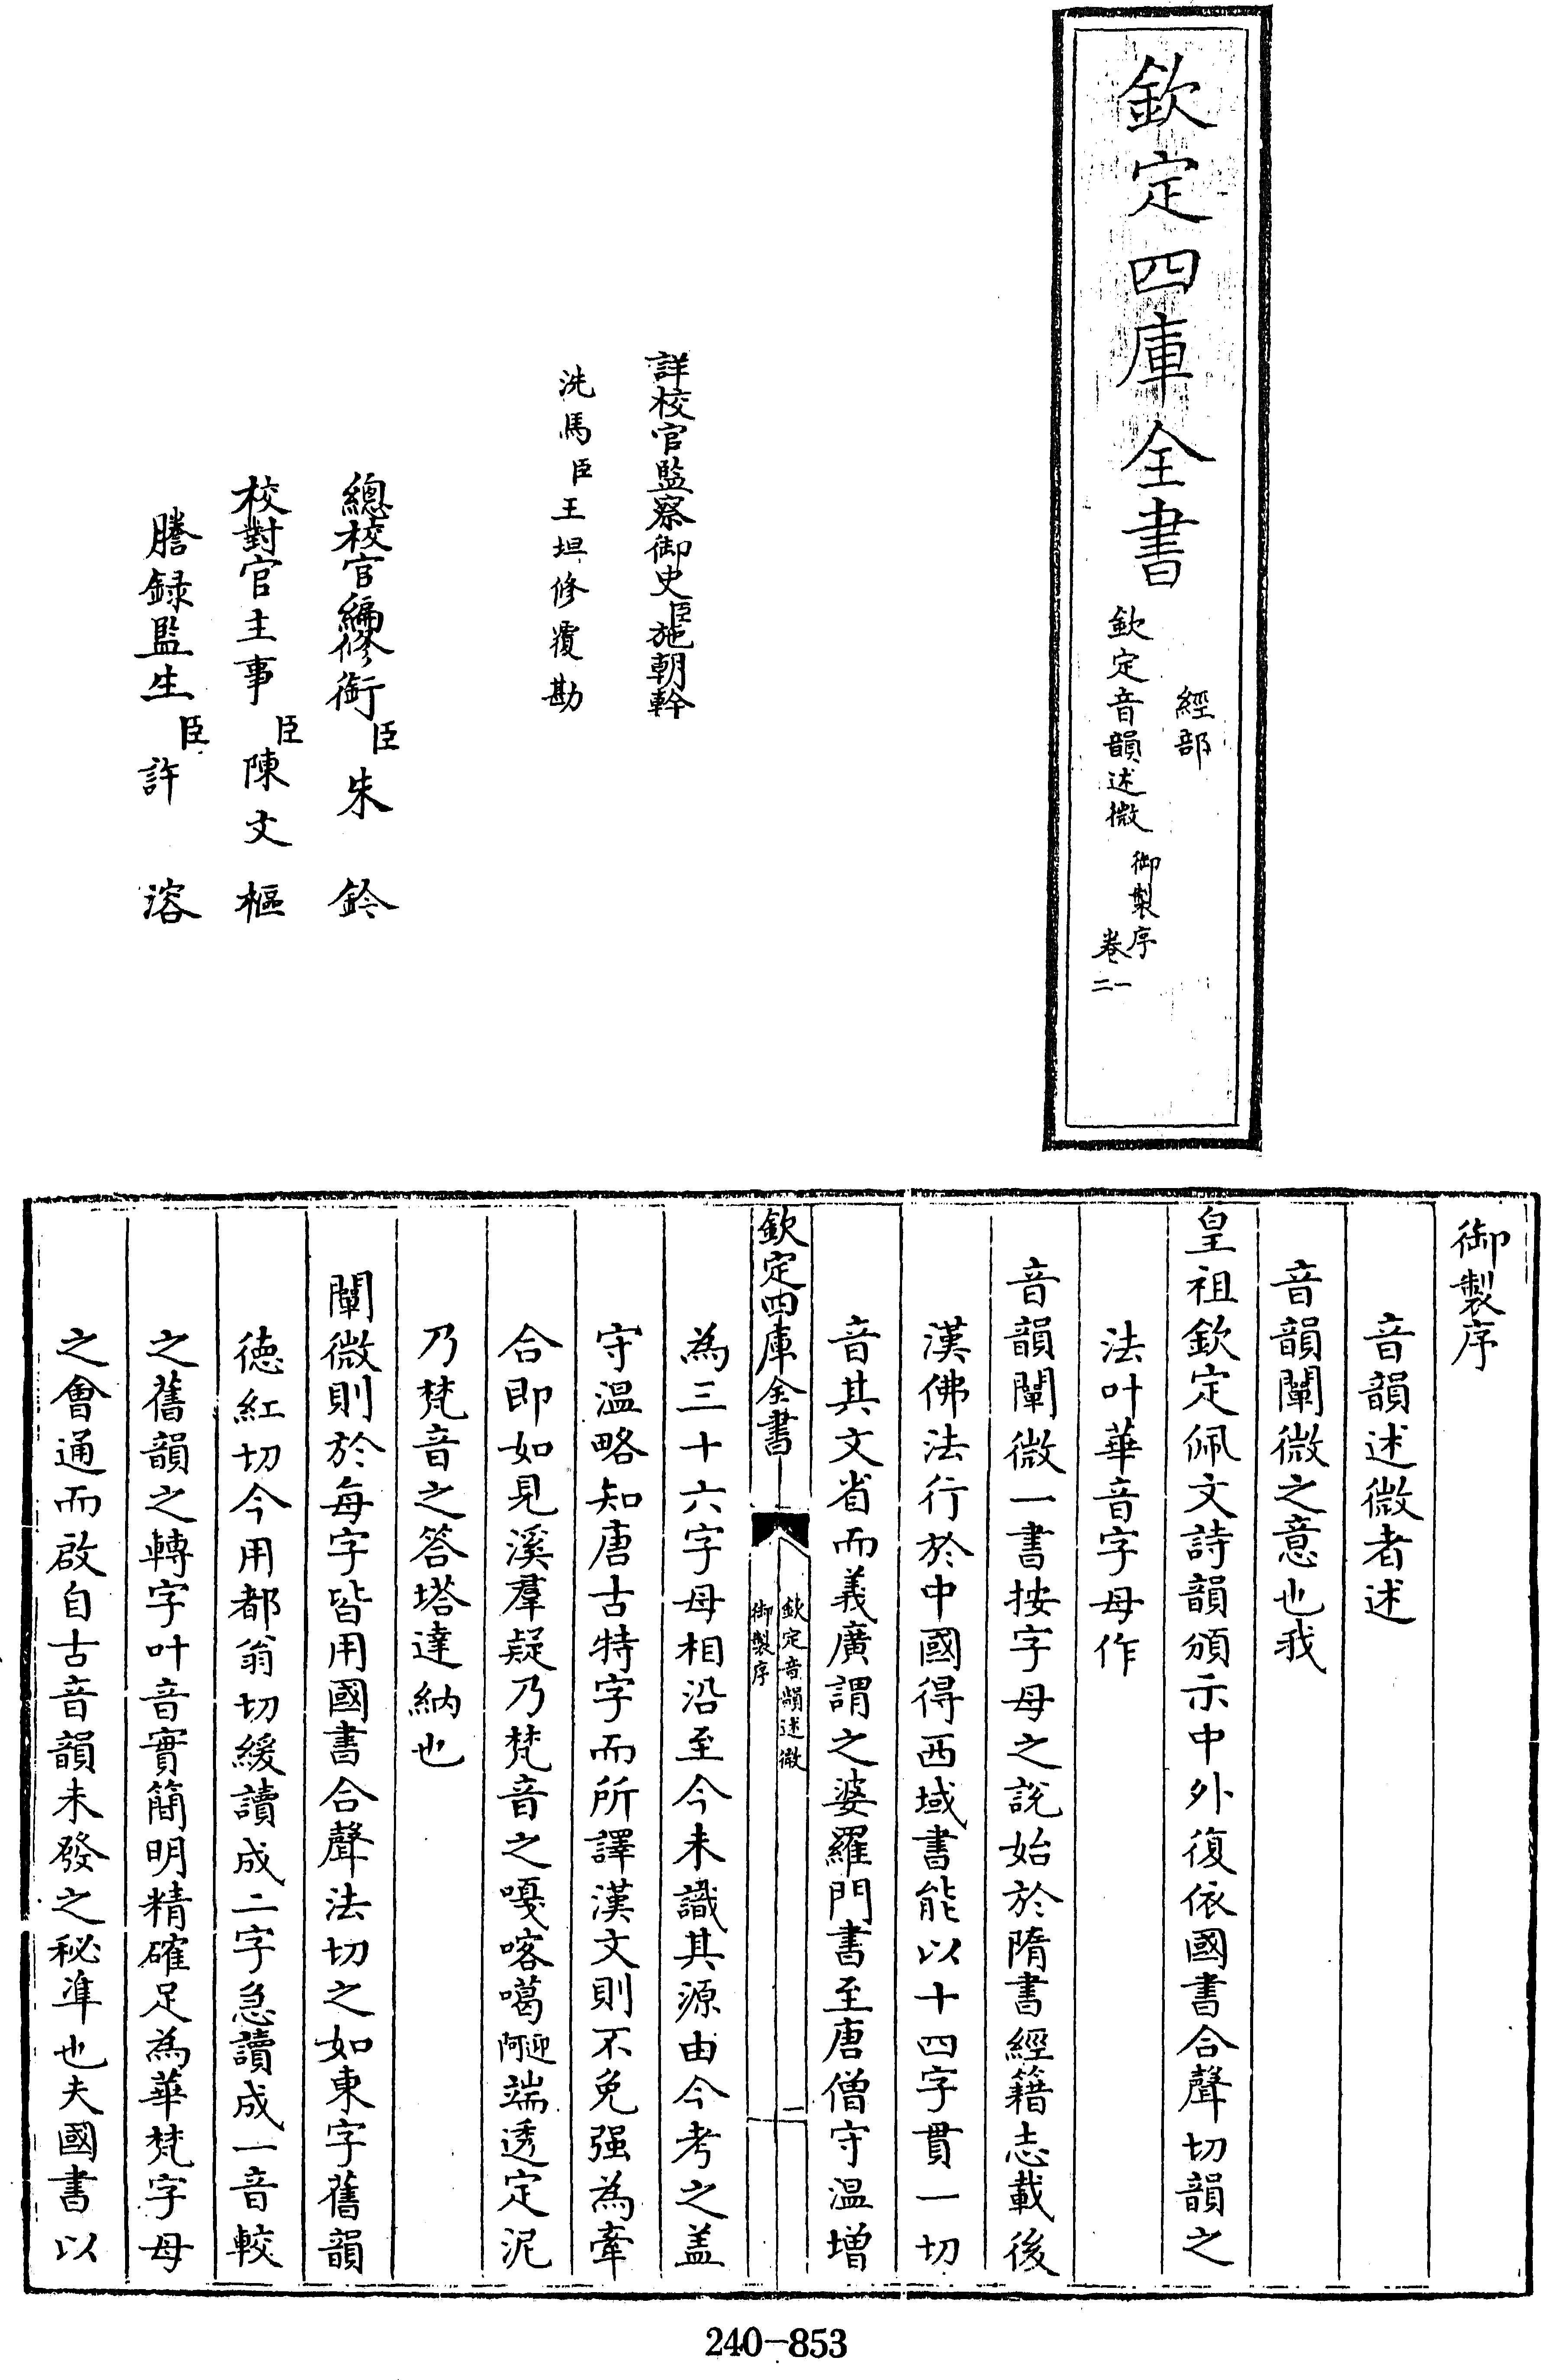 欽定四庫全書
經部
欽定音韻述微
御製序
卷一
二
詳校官監察御史臣施朝幹
洗馬臣王坦修覆勘
總校官編修銜臣朱鈐
校對官主事臣陳文樞
謄録監生臣許溶
御製序
音韻述微者述
音韻闡微之意也我
皇祖欽定佩文詩韻頒示中外復依國書合聲切韻之
法叶華音字母作
音韻闡微一書按字母之說始於隋書經籍志載後
漢佛法行於中國得西域書能以十四字貫一切
音其文省而義廣謂之婆羅門書至唐僧守温増
欽定四庫全書
欽定音韻述微
御製序
二
為三十六字母相沿至今未識其源由今考之盖
守温略知唐古特字而所譯漢文則不免强為牽
合即如見溪羣疑乃梵音之嘎喀噶阿迎端透定泥
乃梵音之答塔達納也
闡微則於每字皆用國書合聲法切之如東字舊韻
徳紅切今用都翁切緩讀成二字急讀成一音較
之舊韻之轉字叶音實簡明精確足為華梵字母
之會通而啟自古音韻未發之秘凖也夫國書以
240-853